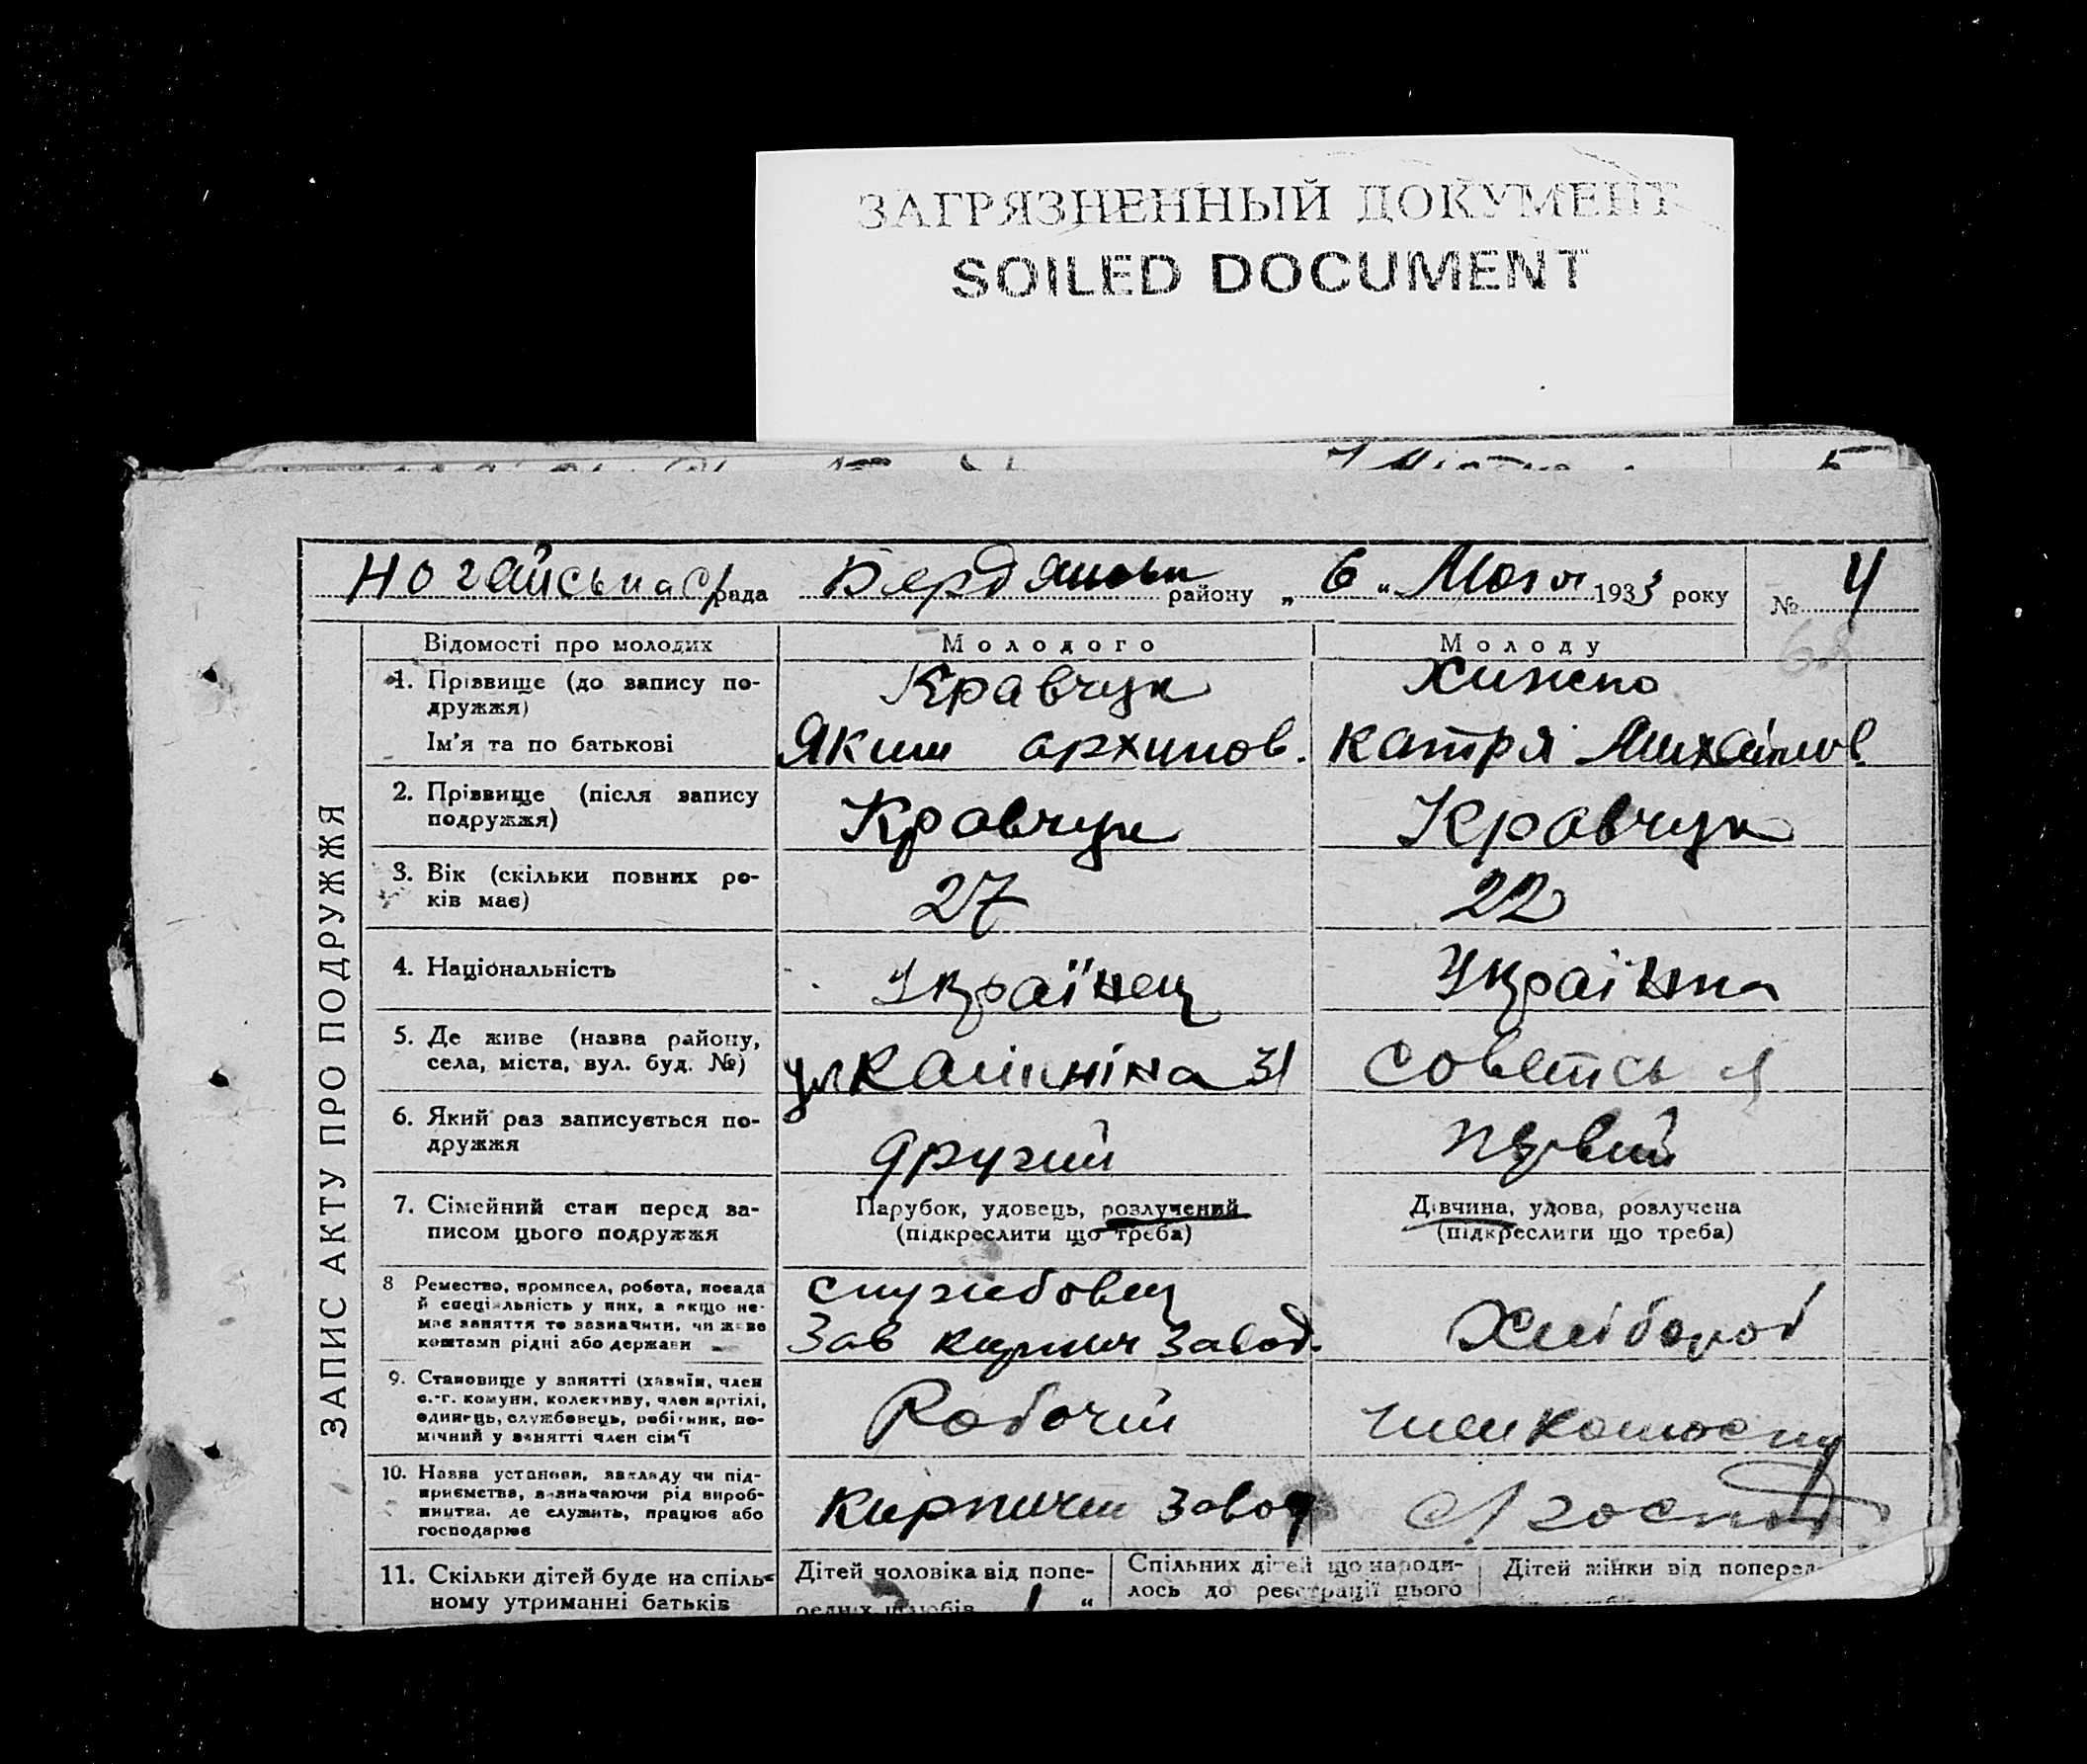 ЗАГРЯЗНЕННЫЙ ДОКУМЕНТ
SOILED DOCUMENT
Ногайська с/рада Бердянськ району „ 6 „ Мая 1933 року № 4
68
ЗАПИС АКТУ ПРО ПОДРУЖЖЯ
Відомості про молодих Молодого Молоду
1. Прізвище (до запису по-
дружжя) Кравчук Хижко
Ім'я та по батькові Яким архипов. Катря Михайлов.
2. Прізвище (після запису
подружжя) Кравчук Кравчук
3. Вік (скільки повних ро-
ків має) 27 22
4. Національність Українец Українка
5. Де живе (назва району,
села, міста, вул. буд. №) ул Калініна 31 Советсь я
6. Який раз записується по-
дружжя другий первий
7. Сімейний стан перед за-
писом цього подружжя
Парубок, удовець, розлучений
(підкреслити що треба)
Дівчина, удова, розлучена
(підкреслити що треба)
8 Ремество, промисел, робота, посада
й спеціальність у них, а якщо не-
має заняття то зазначити, чи живе
коштами рідні або держави
службовец
Зав кирпич завод.
Хлібороб
9. Становище у занятті (хазяїн, член
с.-г. комуни, колективу, член артілі,
одинець, службовець, робітник, по-
мічний у занятті член сім'ї
Робочий
член колгоспу
10. Назва установи, закладу чи під-
приємства, зазначаючи рід вироб-
ництва, де служить, працює або
господарює
Кирпичий завод
С/господ
11. Скільки дітей буде на спіль-
ному утриманні батьків
Дітей чоловіка від попе-
редніх шлюбів 1 "
Спільних дітей що народи-
лось до реєстрації цього
Дітей жінки від поперед-